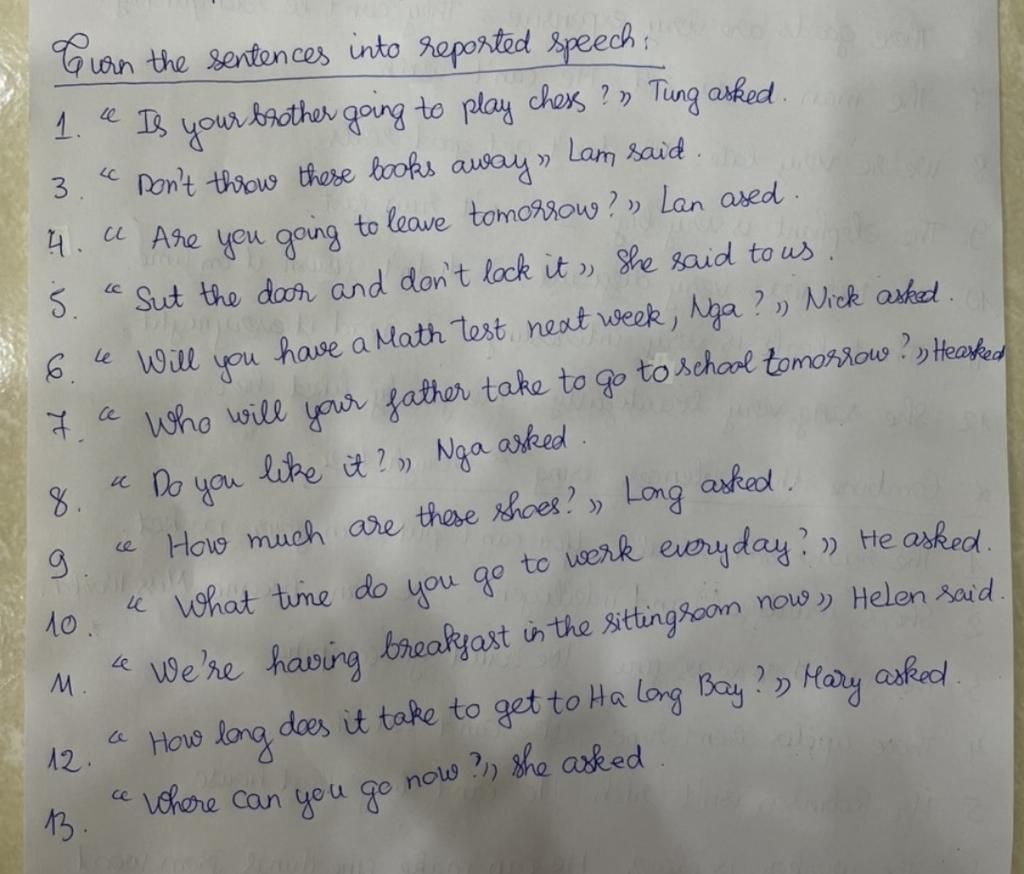 Turn the sentences into reported speech:
1. “ Is your brother going to play chess ? ” Tung asked.
3. “ Don't throw these books away ” Lam said.
4. “ Are you going to leave tomorrow ? ” Lan ased.
5. “ Sut the door and don't lock it ” She said to us.
6. “ Will you have a Math Test next week, Nga ? ” Nick asked.
7. “ Who will your father take to go to school tomorrow ? ” He asked
8. “ Do you like it ? ” Nga asked.
9 “ How much are these shoes? ” Long asked.
10. “ What time do you go to work everyday? ” He asked.
11. “ We're having breakfast in the sittingroom now ” Helen said.
12. “ How long does it take to get to Ha Long Bay ? ” Mary asked.
13. “ Where can you go now ? ” She asked.